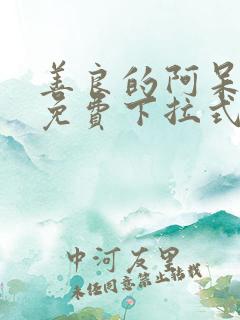 善良的阿呆
免费下拉式
中河友里
未经同意禁止转载